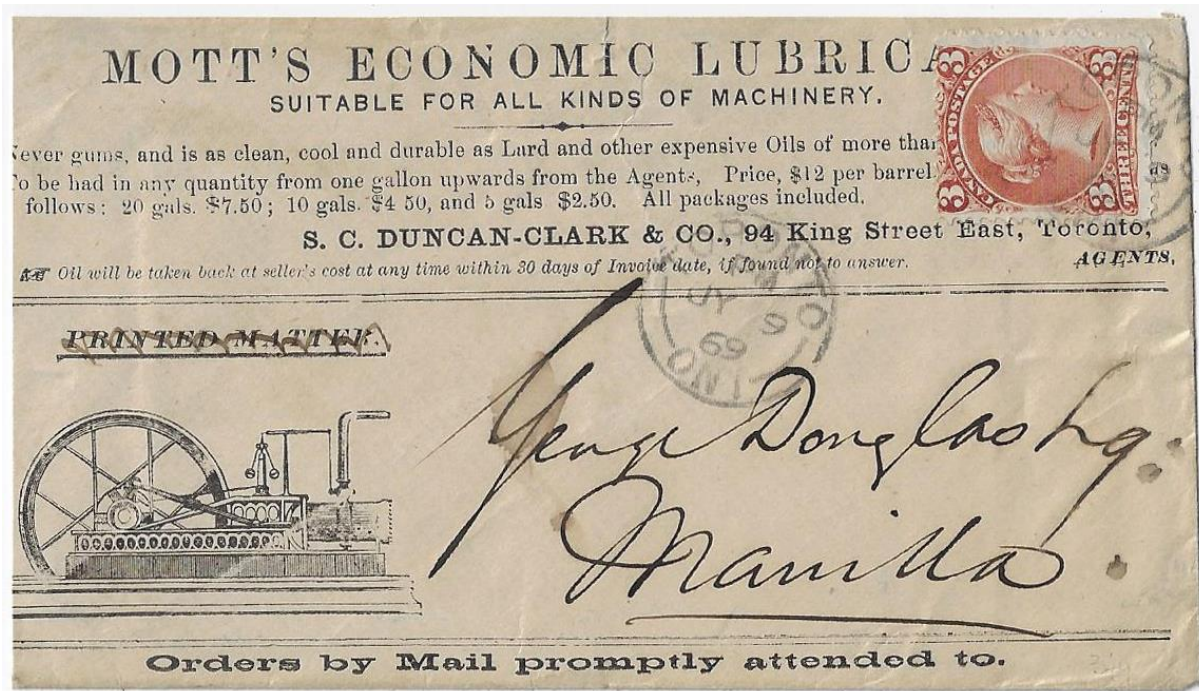 MOTT'S ECONOMIC LUBRICA
SUITABLE FOR ALL KINDS OF MACHINERY.
ever gums, and is as clean, cool and durable as Lard and other expensive Oils of more than
To be had in any quantity from one gallon upwards from the Agents, Price, $12 per barrel
follows: 20 gals. $7.50; 10 gals. $4 50, and 5 gals $2.50. All packages included.
S. C. DUNCAN-CLARK & CO., 94 King Street East, Toronto,
AGENTS,
Oil will be taken back at seller's cost at any time within 30 days of Invoice date, if found not to answer.
CANADA POSTAGE
THREE CENTS
3 3 3 3
TORONTO
JY 9
69
ONT
PRINTED MATTER.
George Douglas Esq.
Manilla
Orders by Mail promptly attended to.